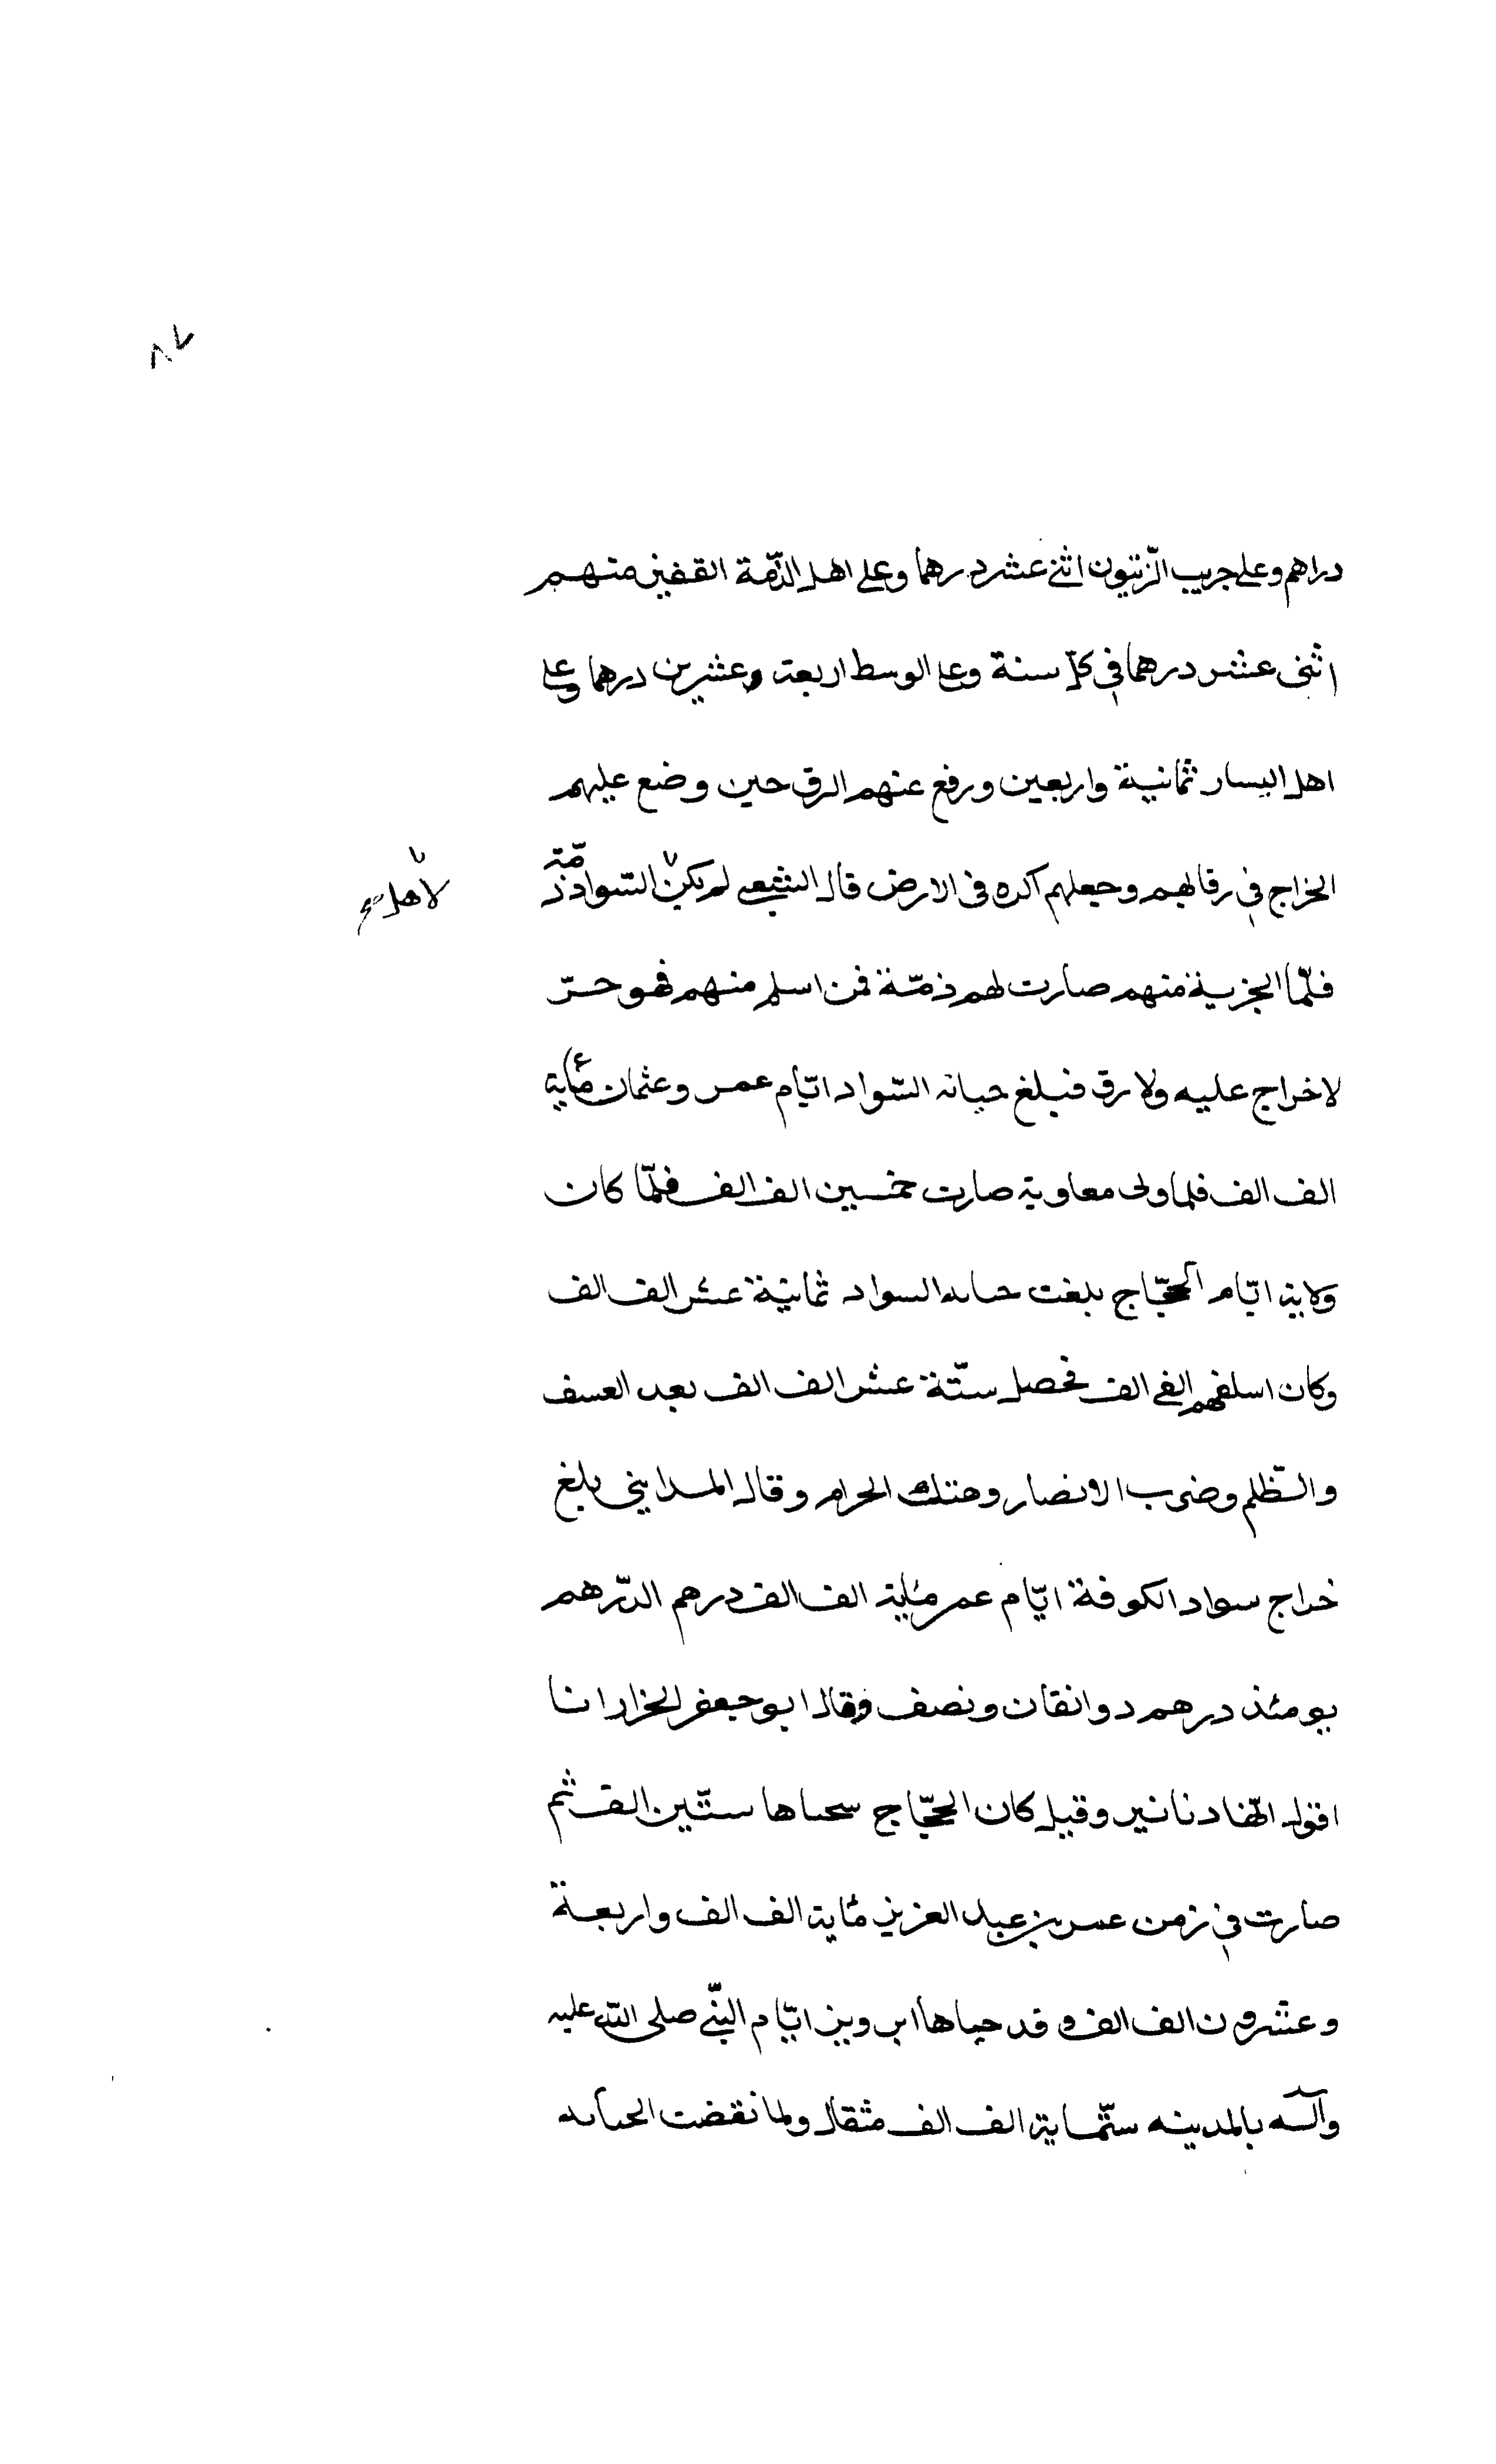 ٨٧
دراهم وعلى جريب الزّيتون اثنى عشر درهما وعلى اهل الذّمّة القفيز منهم
اثنى عشر درهما فى كلّ سنة وعلى الوسط اربعة وعشرين درهما وعلى
اهل اليسار ثمانية واربعين ورفع عنهم الرق حين وضع عليهم
الخراج في رقابهم وجعلهم اكره فى الارض قال الشعبى لم يكن السّواد ذمّة
لاهل
فلمّا الجزية منهم صارت لهم ذمّة فمن اسلم منهم فهو حرّ
لاخراج عليه ولا رق فبلغ حبانه السّواد ايّام عمر وعثمان مأية
الف الف فلما ولى معاوية صارت خمسين الف الف فلمّا كان
ولاية ايّام الحجّاج بلغت حىاىه السواد ثمانية عشر الف الف
وكان اسلفهم الفى الف فحصل ستّة عشر الف الف بعد العسف
والتظلم وضرب الانصار وهتك الحرام وقال المداينى بلغ
خراج سواد الكوفة ايّام عمر مأية الف الف درهم الدّرهم
يومئذ درهم دوانقان ونصف وقال ابو جعفر الخزار انا
اقول انّها دنانير وقيل كان الحجّاج سحىاها ستّين الف ثم
صارت في زمن عمر بن عبد العزيز مأية الف الف واربعة
وعشرون الف الف وقد حباها ابرويز ايّام النّبى صلى الله عليه
وآله بالمدينه ستّماية الف الف مثقال ولما نقضت الحىاىه